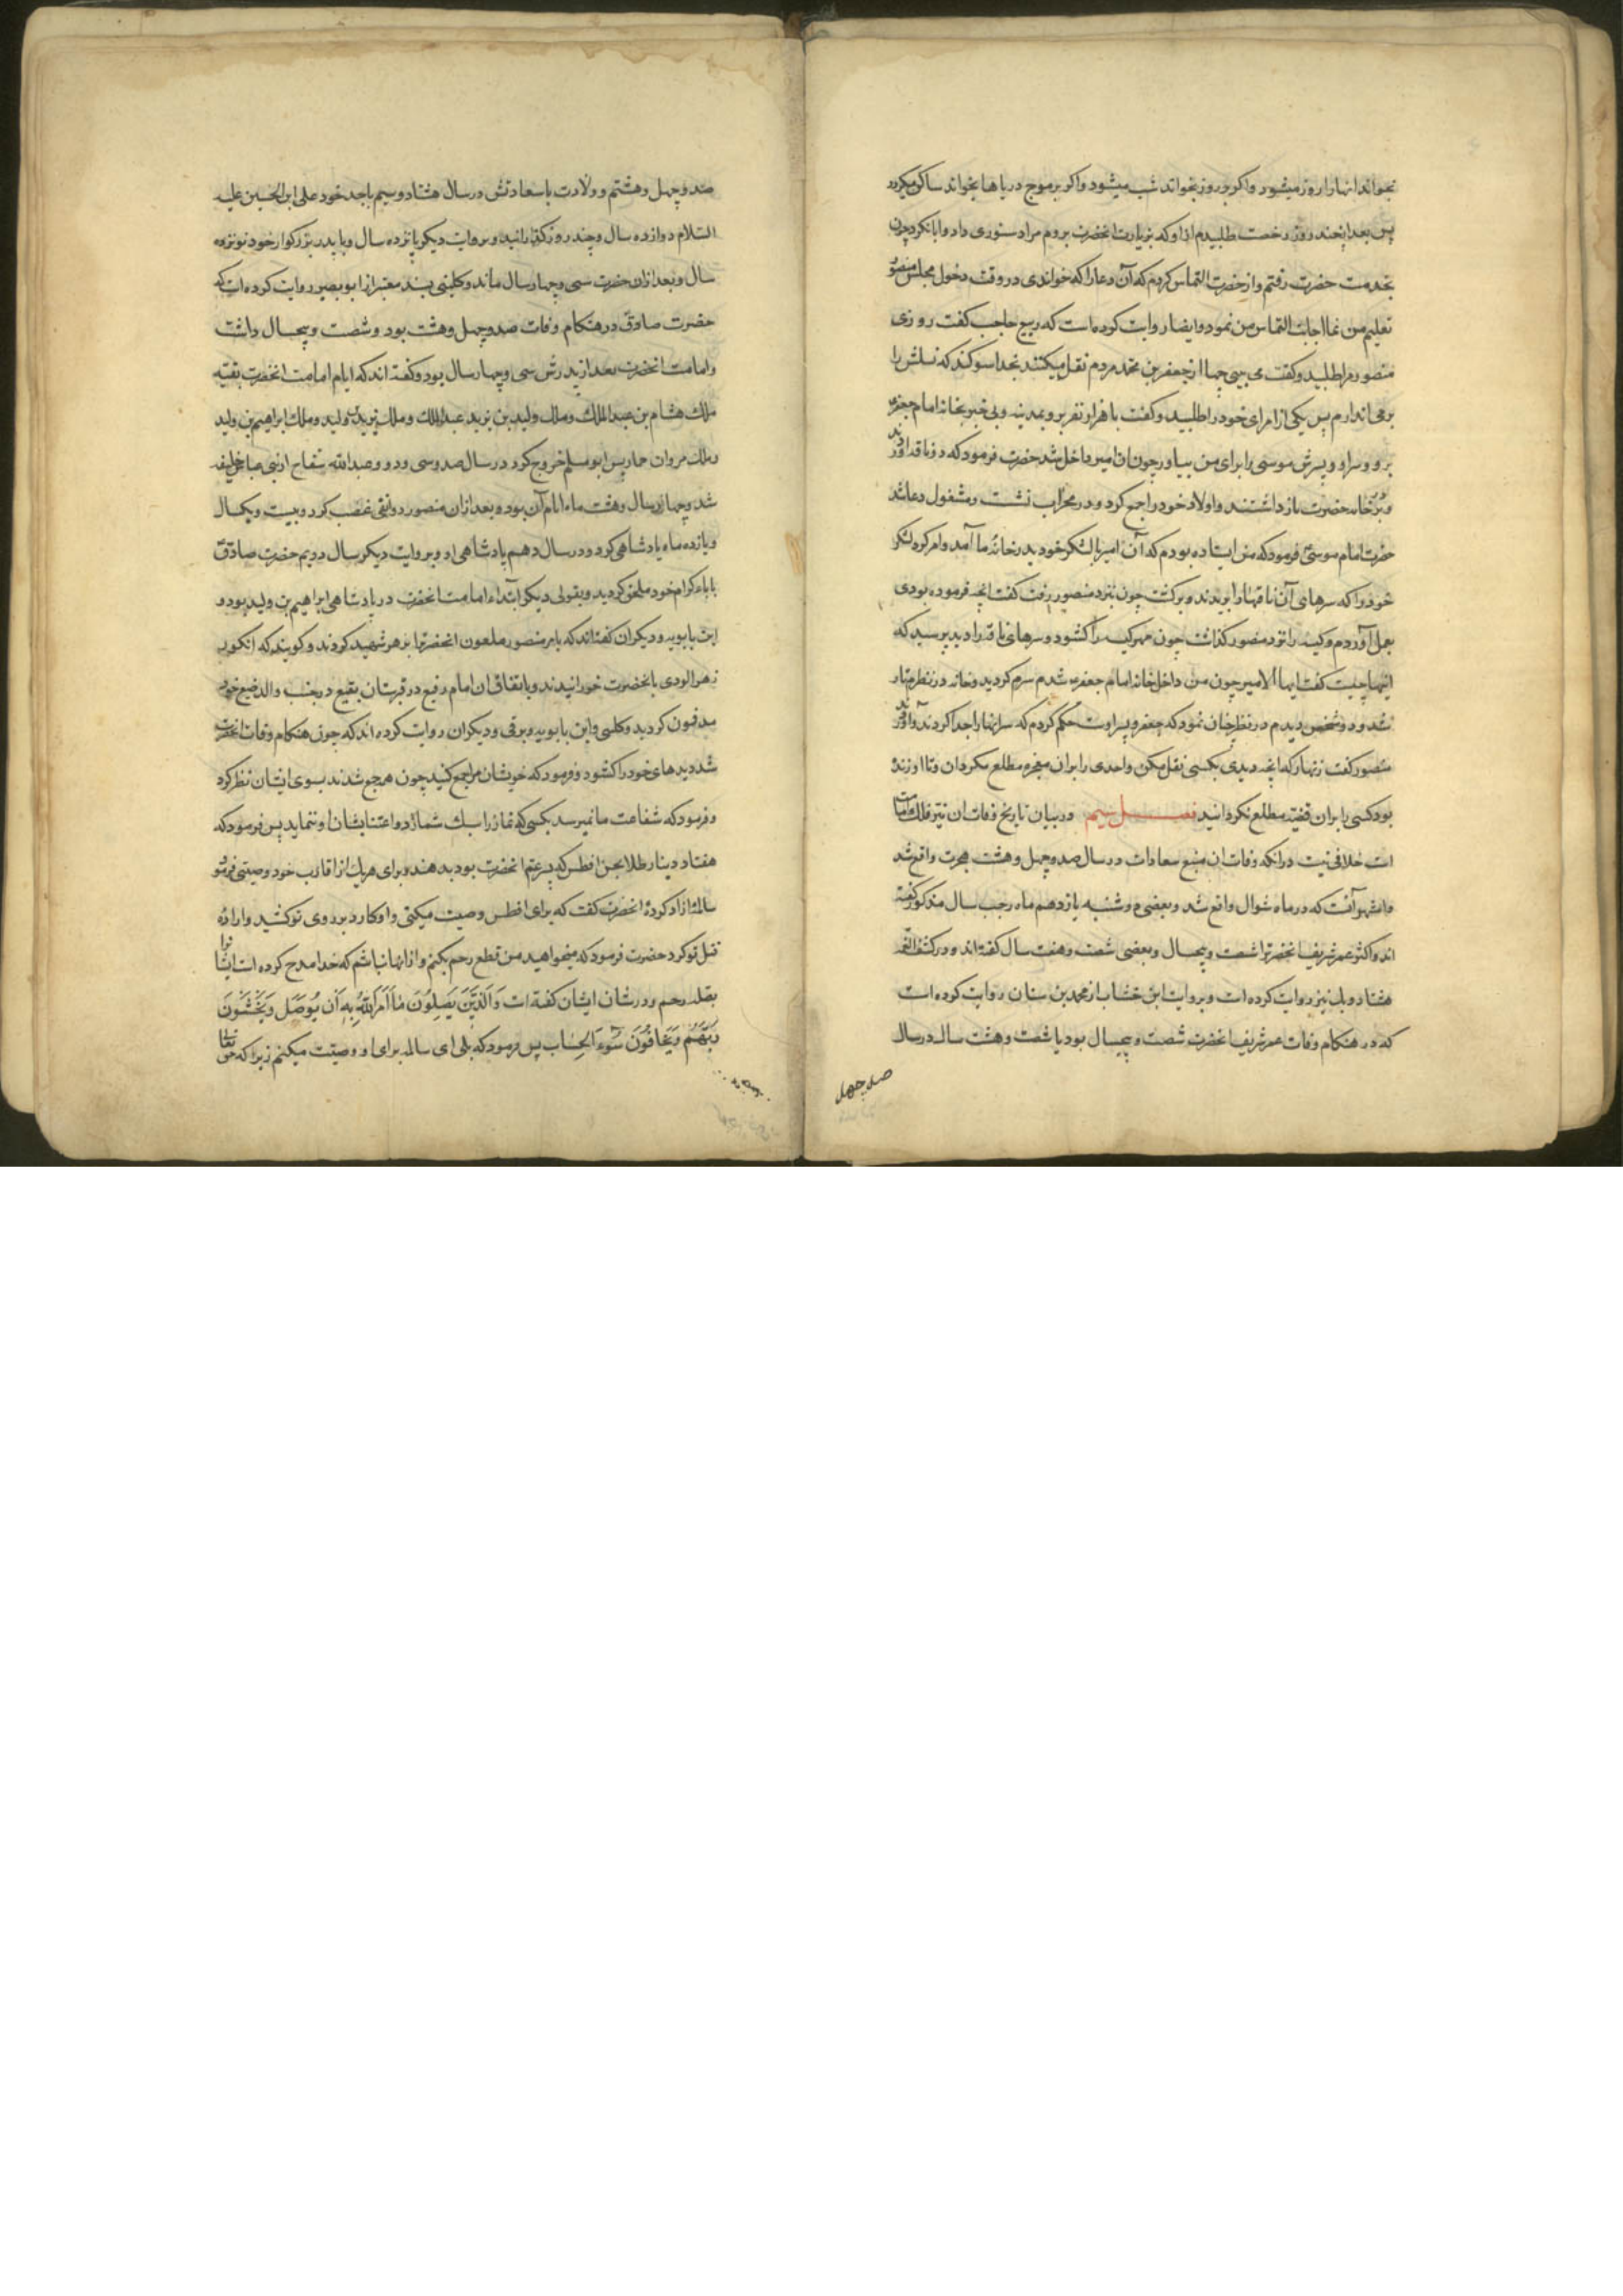 بخواند انها را روز میشود واکر در روز بخواند شب میشود واکر بر موج دریاها بخواند ساکن میکردد
پس بعد از چند روز رخصت طلبیدم از او که بزیارت انحضرت بروم مرا دستوری داد و ابا نکرد چون
بخدمت حضرت رفتم و از حضرت التماس کردم که آن دعا را که خواندی در وقت دخول مجلس منصور
تعلیم من نما اجابت التماس من نمود وایضا روایت کرده است که ربیع حاجب کفت روزی
منصور مرا طلبید وکفت می بینی چها از جعفر بن محمد مردم نقل میکنند بخدا سوکند که نسلش را
بر می اندازم پس یکی از امرای خود را طلبید وکفت با هزار نفر برو بمدینه و بی خبر بخانه امام جعفر
برو و سر او و پسرش موسی را برای من بیاور چون ان امیر داخل شد حضرت فرمود که دو ناقه اوردند
و بر در خانه حضرت بازداشتند و اولاد خود را جمع کرد و در محراب نشست و مشغول دعا شد
حضرت امام موسی فرمود که من ایستاده بودم که آن امیر با لشکر خود بدر خانه ما آمد وامر کرد لشکر
خود را که سرهای آن ناقها را بریدند و برکشت چون نزد منصور رفت کفت انچه فرموده بودی
بعمل آوردم و کیسه را نزد منصور کذاشت چون مهر کیسه را کشود و سرهای ناقه را دید پرسید که
اینها چیست کفت ایها الامیر چون من داخل خانه امام جعفر شدم سرم کردید و خانه در نظرم تار
شد و دو شخص دیدم در نظرم چنان نمود که جعفر و پسر اوست حکم کردم که سر انها را جدا کردند و آوردند
منصور کفت زنهار که انچه دیدی بکسی نقل مکن و احدی را بر این معجزه مطلع مکردان و تا او زنده
بود کسی را بر ان قضیه مطلع نکردانید فصل سیم در بیان تاریخ وفات ان نیر فلک امامت
است خلافی نیست در انکه وفات ان منبع سعادات در سال صد و چهل و هشت هجرت واقع شد
و اشهر آنست که در ماه شوال واقع شد و بعضی دوشنبه پانزدهم ماه رجب سال مذکور کفته
اند و اکثر عمر شریف انحضرت را شصت و پنجسال و بعضی شصت و هفت سال کفته اند و در کشف الغمه
هشتاد و یک نیز روایت کرده است و بروایت ابن خشاب از محمد بن سنان روایت کرده است
که در هنکام وفات عمر شریف انحضرت شصت و پنجسال بود یا شصت و هشت سال در سال
صد چهل
صد و چهل و هشتم و ولادت باسعادتش در سال هشتاد و سیم با جد خود علی ابن الحسین علیه
السلام دوازده سال و چند روز کذرانید و بروایت دیکر پانزده سال و با پدر بزرکوار خود نوزده
سال و بعد ازان حضرت سی و چهار سال ماند و کلینی بسند معتبر از ابو بصیر روایت کرده است که
حضرت صادق در هنکام وفات صد و چهل و هشت بود و شصت و پنجسال داشت
و امامت انحضرت بعد از پدرش سی و چهار سال بود و کفته اند که ایام امامت انحضرت بقیه
ملک هشام بن عبد الملک و ملک ولید بن یزید عبد الملک و ملک یزید بن ولید و ملک ابراهیم بن ولید
و ملک مروان حمار پس ابو مسلم خروج کرد در سال صد و سی و دو و عبد الله سفاح از بنی عباس خلیفه
شد و چهار سال و هشت ماه ایام آن بود و بعد ازان منصور دوانقی غصب کرد و بیست و یکسال
و یازده ماه پادشاهی کرد و در سال دهم پادشاهی او و بروایت دیکر سال دویم حضرت صادق
باباء کرام خود ملحق کردید و بقولی دیکر ابتداء امامت انحضرت در پادشاهی ابراهیم بن ولید بود و
ابن بابویه و دیکران کفته اند که بامر منصور ملعون انحضرت را بزهر شهید کردند و کویند که انکور
زهرالودی بانحضرت خورانیدند و باتفاق ان امام رفیع در قبرستان بقیع در جنب والد رفیع خود
مدفون کردید و کلینی و ابن بابویه و برقی و دیکران روایت کرده اند که چون هنکام وفات انحضرت
شد دیدهای خود را کشود و فرمود که خویشان مرا جمع کنید چون همه جمع شدند بسوی ایشان نظر کرد
و فرمود که شفاعت ما نمیرسد بکسی که نماز را سبک شمارد و اعتنا بشان او ننماید پس فرمود که
هفتاد دینار طلا بحسن افطس که پسر عم انحضرت بود بدهند و برای هریک از اقارب خود وصیتی فرمود
سالمه ازاد کرده انحضرت کفت که برای افطس وصیت میکنی و او کارد بر روی تو کشید و اراده
قتل تو کرد حضرت فرمود که میخواهید من قطع رحم بکنم و از انها نباشم که خدا مدح کرده است ایشانرا
بصله رحم و در شان ایشان کفته است وَالَّذِينَ يَصِلُونَ مَا أَمَرَ اللَّهُ بِهِ أَن يُوصَلَ وَيَخْشَوْنَ
رَبَّهُمْ وَيَخَافُونَ سُوءَ الْحِسَاب پس فرمود که بلی ای سالمه برای او وصیت میکنم زیرا که حق تعالی